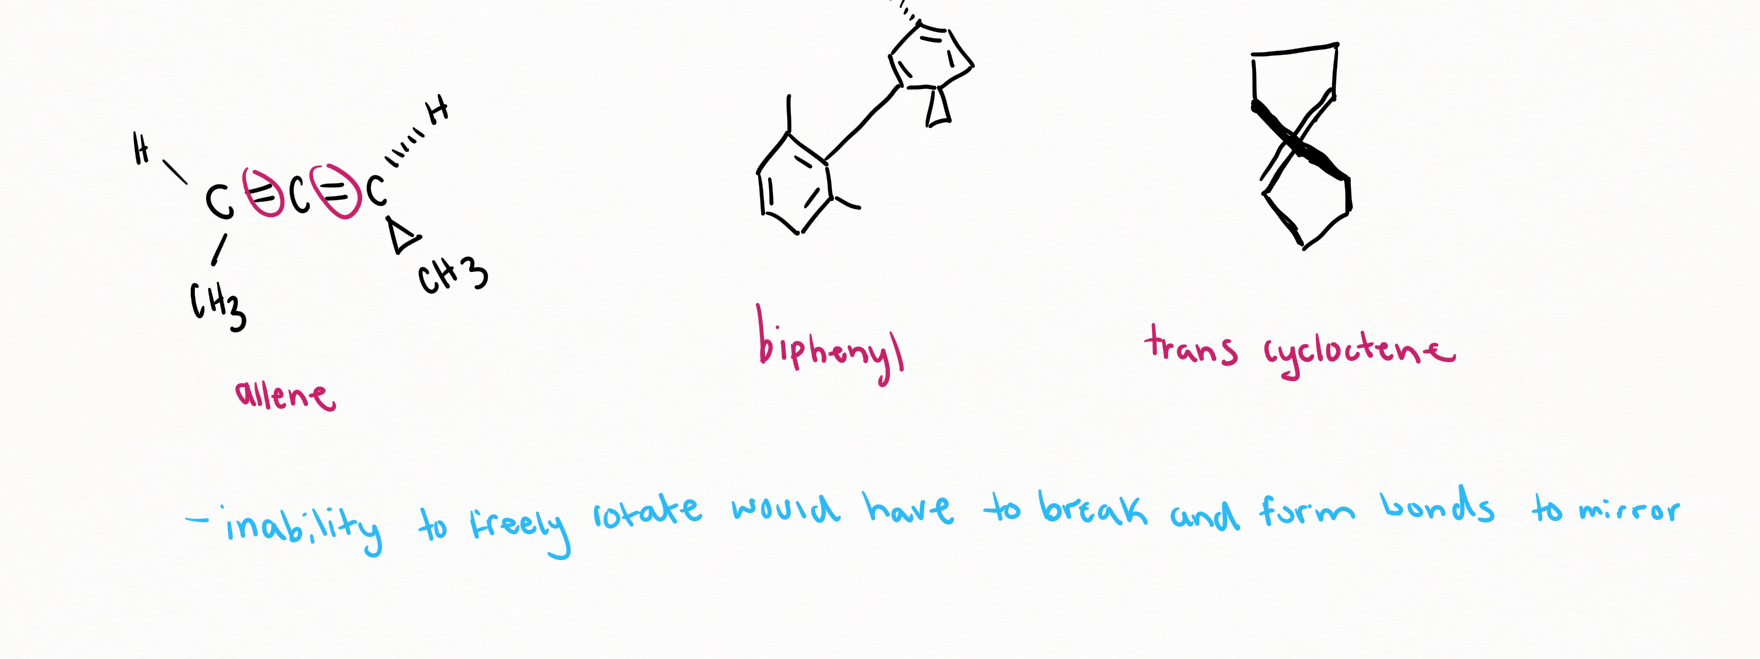 H
H
C = C = C
CH3
CH3
allene
biphenyl
trans cycloctene
- inability to freely rotate would have to break and form bonds to mirror